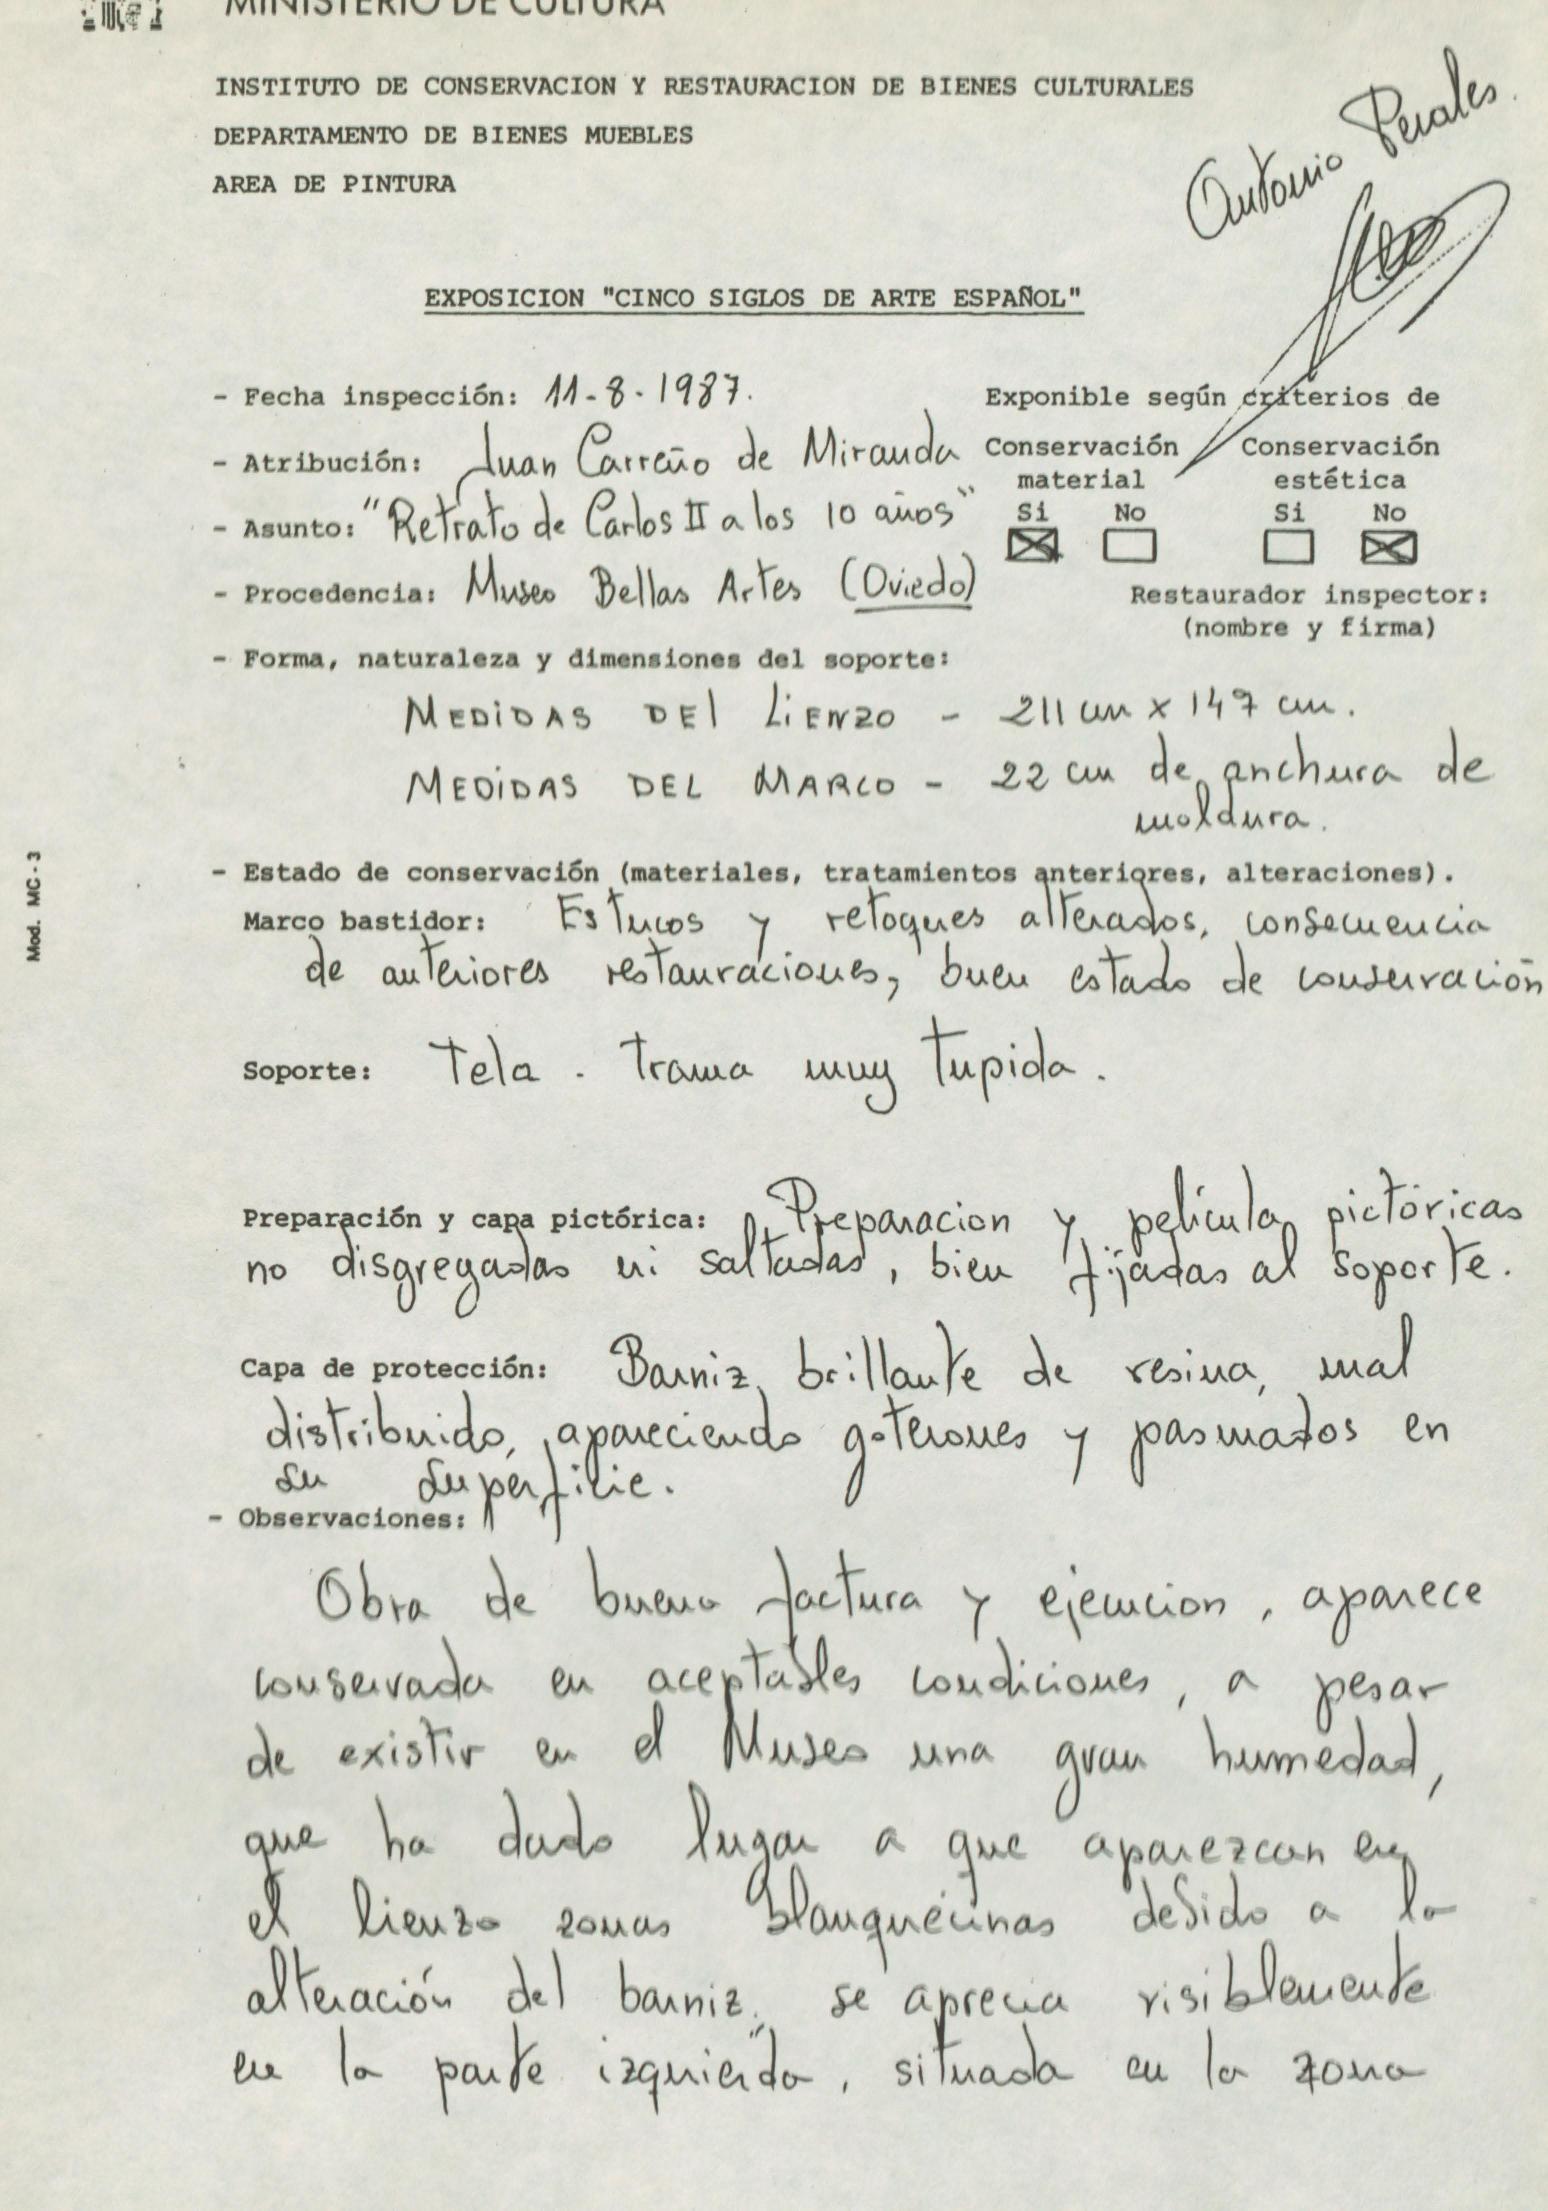 MINISTERIO DE CULTURA
INSTITUTO DE CONSERVACION Y RESTAURACION DE BIENES CULTURALES
DEPARTAMENTO DE BIENES MUEBLES
AREA DE PINTURA
Antonio Perales.
EXPOSICION "CINCO SIGLOS DE ARTE ESPAÑOL"
- Fecha inspección: 11-8-1987.
- Atribución: Juan Carreño de Miranda
- Asunto: "Retrato de Carlos II a los 10 años"
- Procedencia: Museo Bellas Artes (Oviedo)
Exponible según criterios de
Conservación material Conservación estética
Si No Si No
Restaurador inspector:
(nombre y firma)
- Forma, naturaleza y dimensiones del soporte:
MEDIDAS DEL LIENZO - 211 cm x 147 cm.
MEDIDAS DEL MARCO - 22 cm de anchura de
moldura.
- Estado de conservación (materiales, tratamientos anteriores, alteraciones).
Marco bastidor: Estucos y retoques alterados, consecuencia
de anteriores restauraciones, buen estado de conservación
Soporte: Tela. Trama muy tupida.
Preparación y capa pictórica: Preparacion y película pictóricas
no disgregadas ni saltadas, bien fijadas al soporte.
Capa de protección: Barniz brillante de resina, mal
distribuido, apareciendo goterones y pasmados en
su superficie.
- Observaciones:
Obra de buena factura y ejecucion, aparece
conservada en aceptables condiciones, a pesar
de existir en el Museo una gran humedad,
que ha dado lugar a que aparezcan en
el lienzo zonas blanquecinas debido a la
alteración del barniz, se aprecia visiblemente
en la parte izquierda, situada en la zona
Mod. MC-3